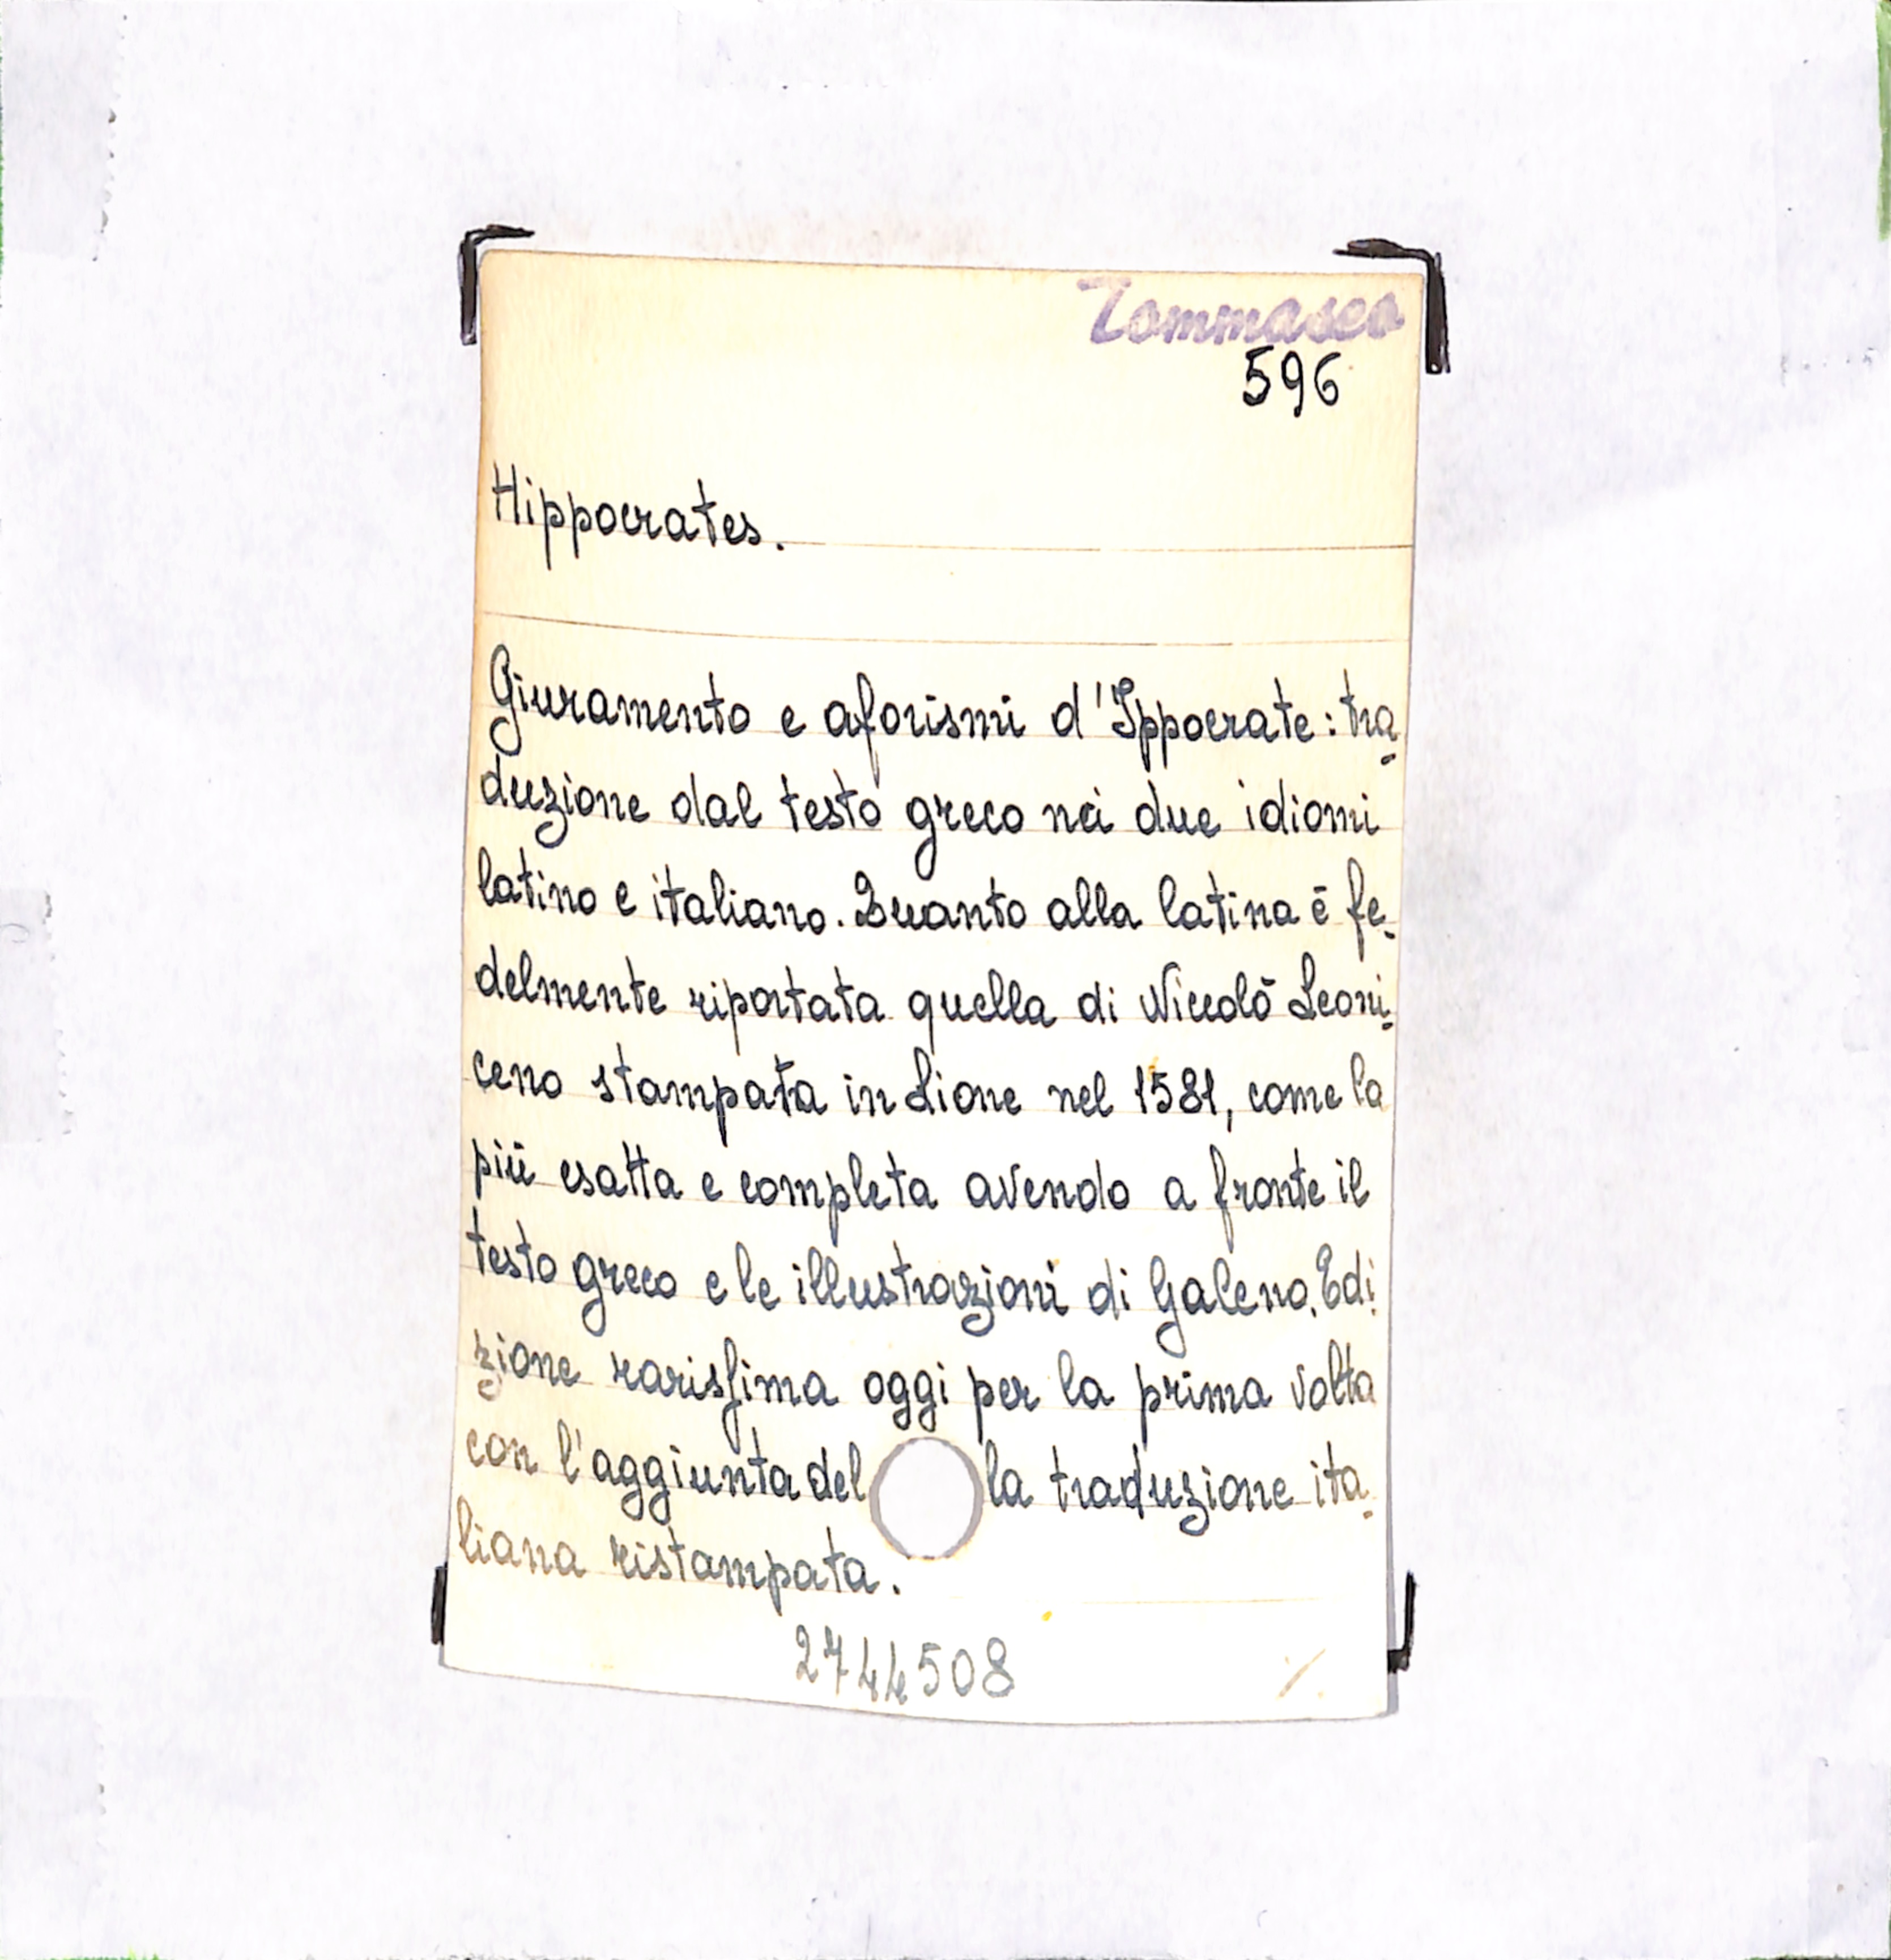 Tommaseo
596
Hippocrates.
Giuramento e aforismi d'Ippocrate: tra-
duzione dal testo greco nei due idiomi
latino e italiano. Quanto alla latina è fe-
delmente riportata quella di Niccolò Leoni-
ceno stampata in Lione nel 1581, come la
più esatta e completa avendo a fronte il
testo greco e le illustrazioni di Galeno. Edi-
zione rarissima oggi per la prima volta
con l'aggiunta del la traduzione ita-
liana ristampata.
2744508
./.